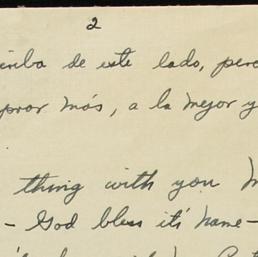 2
criba de este lado, pero
prar más, a la mejor y
thing with you
- God bless it's name -